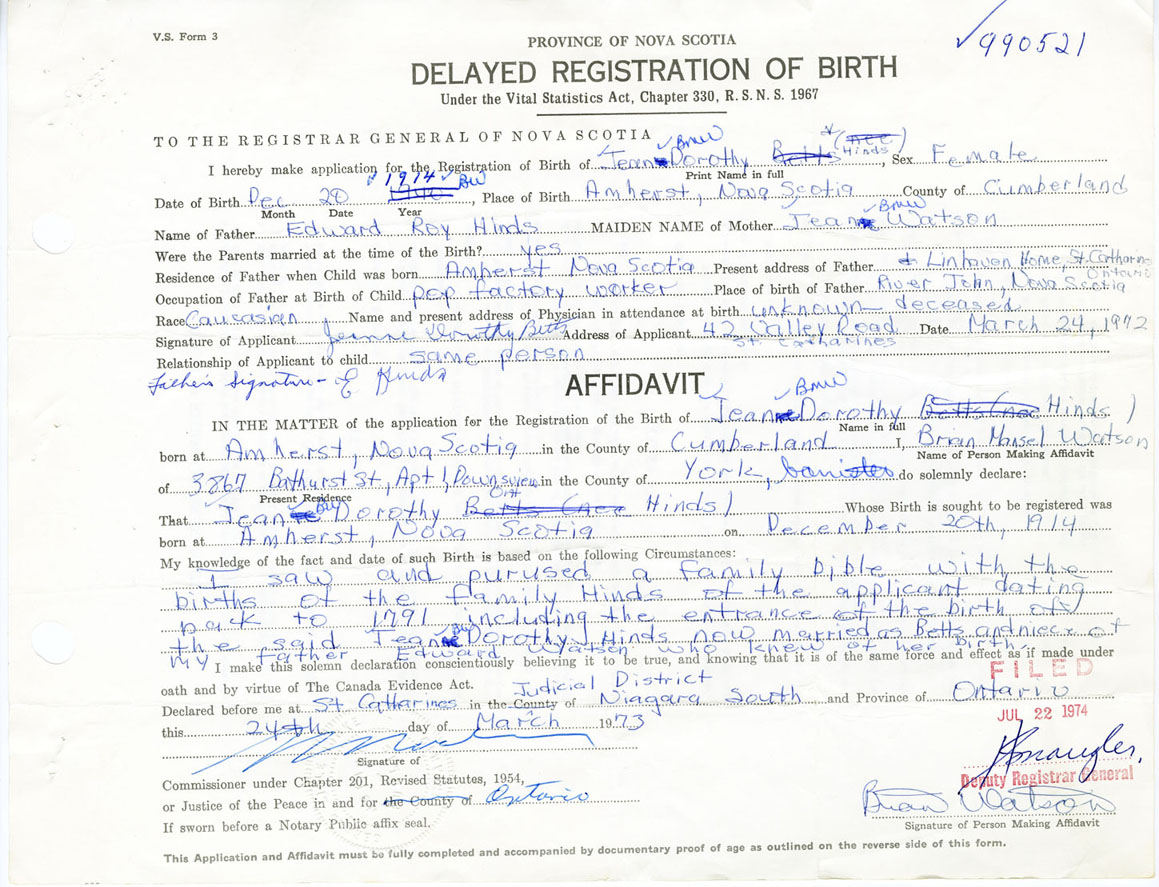 V.S. Form 3
✓990521
PROVINCE OF NOVA SCOTIA
DELAYED REGISTRATION OF BIRTH
Under the Vital Statistics Act, Chapter 330, R.S.N.S. 1967
TO THE REGISTRAR GENERAL OF NOVA SCOTIA
BMW
I hereby make application for the Registration of Birth of Jean Dorothy Betts (nee Hinds), Sex Female
Print Name in full
1914 BW
Date of Birth Dec 20, Place of Birth Amherst, Nova Scotia County of Cumberland
Month Date Year
BMW
Name of Father Edward Roy Hinds MAIDEN NAME of Mother Jean Watson
Were the Parents married at the time of the Birth? yes
Residence of Father when Child was born Amherst Nova Scotia Present address of Father Linhaven Home, St. Catharines
Ontario
Occupation of Father at Birth of Child pop factory worker Place of birth of Father River John, Nova Scotia
Race Causasian, Name and present address of Physician in attendance at birth unknown - deceased
Signature of Applicant Jeanne Dorothy Betts Address of Applicant 42 Valley Road Date March 24, 1972
St. Catharines
Relationship of Applicant to child same person
Father's Signature - E Hinds
AFFIDAVIT
BMW
IN THE MATTER of the application for the Registration of the Birth of Jean Dorothy Betts (nee Hinds)
Name in full
born at Amherst, Nova Scotia in the County of Cumberland I, Brian Mansel Watson
Name of Person Making Affidavit
of 3867 Bathurst St, Apt 1, Downsview in the County of York, barrister do solemnly declare:
Ont
Present Residence
BW
That Jean Dorothy Betts (nee Hinds) Whose Birth is sought to be registered was
born at Amherst, Nova Scotia on December 20th, 1914
My knowledge of the fact and date of such Birth is based on the following Circumstances:
I saw and purused a family bible with the
births of the family Hinds of the applicant dating
back to 1791 including the entrance of the birth of
the said Jean Dorothy Hinds now married as Betts and niece of
my father Edward Watson who knew of her birth
I make this solemn declaration conscientiously believing it to be true, and knowing that it is of the same force and effect as if made under
oath and by virtue of The Canada Evidence Act.
FILED
Judicial District
Declared before me at St Catharines in the County of Niagara South and Province of Ontario
this 24th day of March 1973
JUL 22 1974
Signature of
Deputy Registrar General
Commissioner under Chapter 201, Revised Statutes, 1954,
or Justice of the Peace in and for the County of Ontario
Brian Watson
Signature of Person Making Affidavit
If sworn before a Notary Public affix seal.
This Application and Affidavit must be fully completed and accompanied by documentary proof of age as outlined on the reverse side of this form.